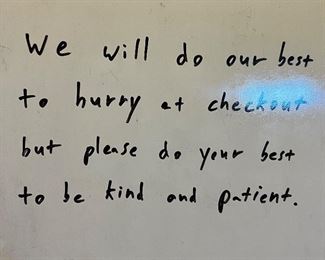 We will do our best
to hurry at checkout
but please do your best
to be kind and patient.